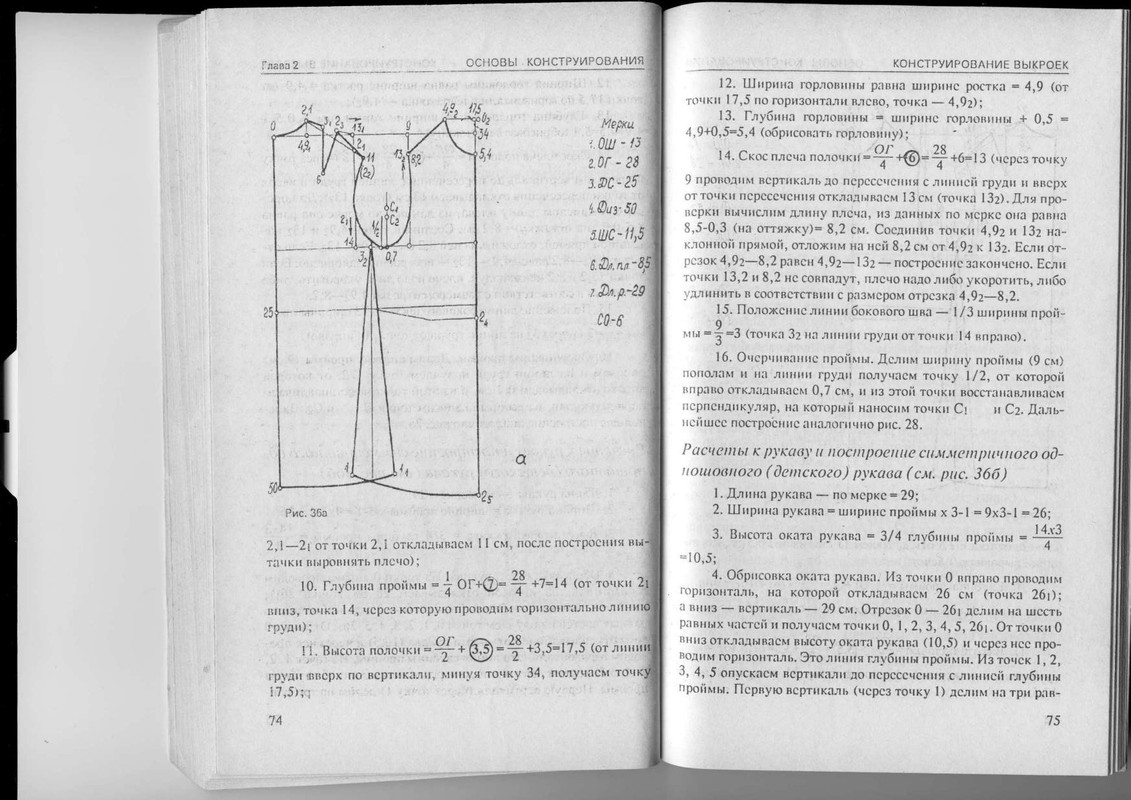 Глава 2
ОСНОВЫ КОНСТРУИРОВАНИЯ
2,1
0
4,9₁
3₁
2₃
13₁
2₁
11
(2₂)
6
0
13₂
8,2
4,9₂
17,5
0₂
34
5,4
C₁
C₂
2₁
1/2
14
3₂
0,7
25
2₄
1
1₁
50
2₅
а
Мерки
1. ОШ - 13
2. ОГ - 28
3. ДС - 25
4. Диз - 50
5. ШС - 11,5
6. Дл. пл. - 8,5
7. Дл. р. - 29
СО - 6
Рис. 36а
2,1—2₁ от точки 2,1 откладываем 11 см, после построения вы-
тачки выровнять плечо);
10. Глубина проймы = 1/4 ОГ+⑦= 28/4 +7=14 (от точки 2₁
вниз, точка 14, через которую проводим горизонтально линию
груди);
11. Высота полочки = ОГ/2 + (3,5) = 28/2 +3,5=17,5 (от линии
груди вверх по вертикали, минуя точку 34, получаем точку
17,5);
74
КОНСТРУИРОВАНИЕ ВЫКРОЕК
12. Ширина горловины равна ширине ростка = 4,9 (от
точки 17,5 по горизонтали влево, точка — 4,9₂);
13. Глубина горловины = ширине горловины + 0,5 =
4,9+0,5=5,4 (обрисовать горловину);
14. Скос плеча полочки = ОГ/4 +⑥= 28/4 +6=13 (через точку
9 проводим вертикаль до пересечения с линией груди и вверх
от точки пересечения откладываем 13 см (точка 13₂). Для про-
верки вычислим длину плеча, из данных по мерке она равна
8,5-0,3 (на оттяжку)= 8,2 см. Соединив точки 4,9₂ и 13₂ на-
клонной прямой, отложим на ней 8,2 см от 4,9₂ к 13₂. Если от-
резок 4,9₂—8,2 равен 4,9₂—13₂ — построение закончено. Если
точки 13,2 и 8,2 не совпадут, плечо надо либо укоротить, либо
удлинить в соответствии с размером отрезка 4,9₂—8,2.
15. Положение линии бокового шва — 1/3 ширины прой-
мы = 9/3 =3 (точка 3₂ на линии груди от точки 14 вправо).
16. Очерчивание проймы. Делим ширину проймы (9 см)
пополам и на линии груди получаем точку 1/2, от которой
вправо откладываем 0,7 см, и из этой точки восстанавливаем
перпендикуляр, на который наносим точки С₁ и С₂. Даль-
нейшее построение аналогично рис. 28.
Расчеты к рукаву и построение симметричного од-
ношовного (детского) рукава (см. рис. 36б)
1. Длина рукава — по мерке = 29;
2. Ширина рукава = ширине проймы х 3-1 = 9х3-1 = 26;
3. Высота оката рукава = 3/4 глубины проймы = 14х3/4
=10,5;
4. Обрисовка оката рукава. Из точки 0 вправо проводим
горизонталь, на которой откладываем 26 см (точка 26₁);
а вниз — вертикаль — 29 см. Отрезок 0 — 26₁ делим на шесть
равных частей и получаем точки 0, 1, 2, 3, 4, 5, 26₁. От точки 0
вниз откладываем высоту оката рукава (10,5) и через нее про-
водим горизонталь. Это линия глубины проймы. Из точек 1, 2,
3, 4, 5 опускаем вертикали до пересечения с линией глубины
проймы. Первую вертикаль (через точку 1) делим на три рав-
75